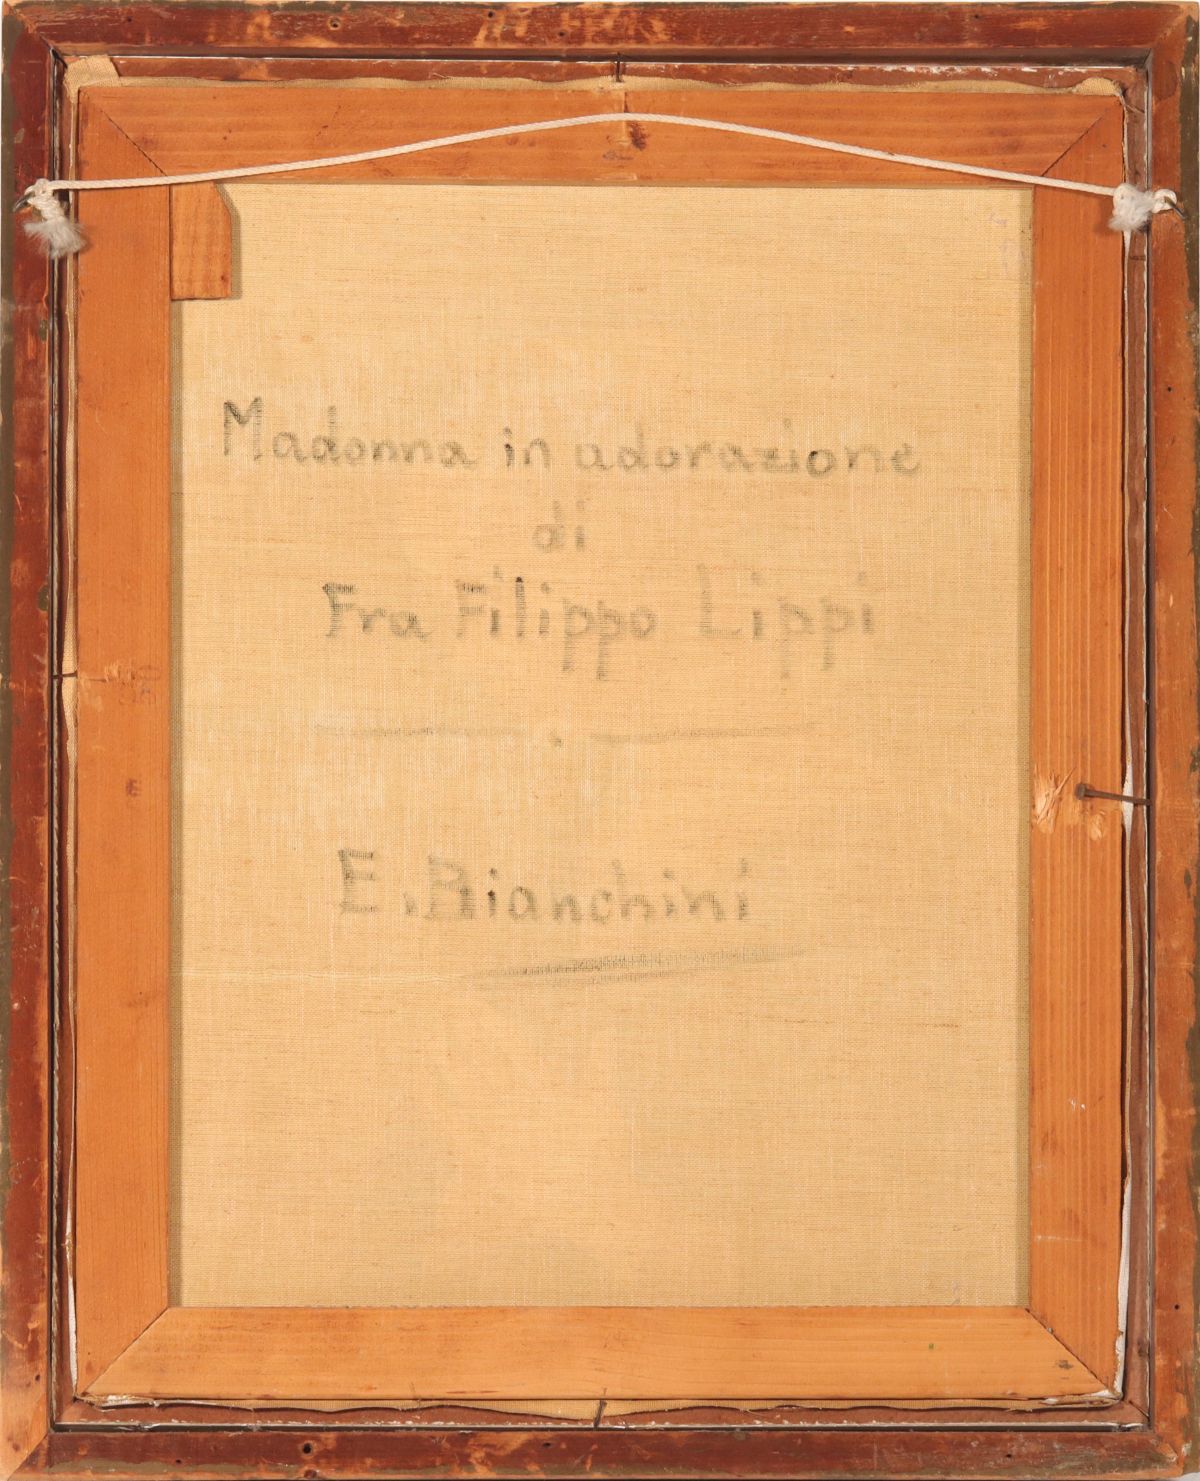 Madonna in adorazione
di
Fra Filippo Lippi
E. Bianchini